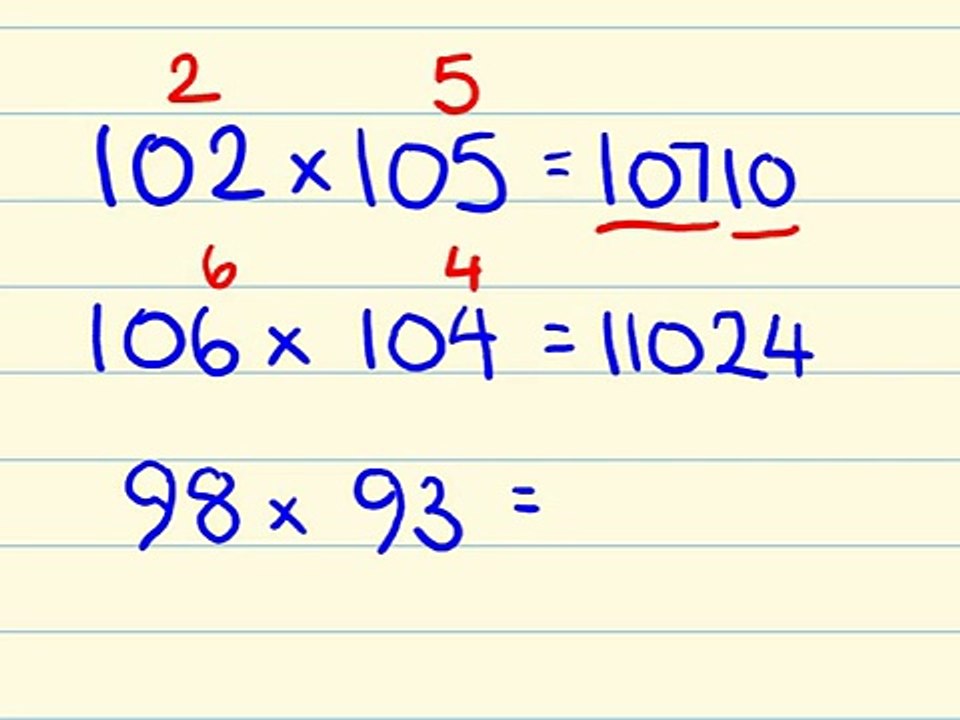 2 5
102 × 105 = 10710
6 4
106 × 104 = 11024
98 × 93 =